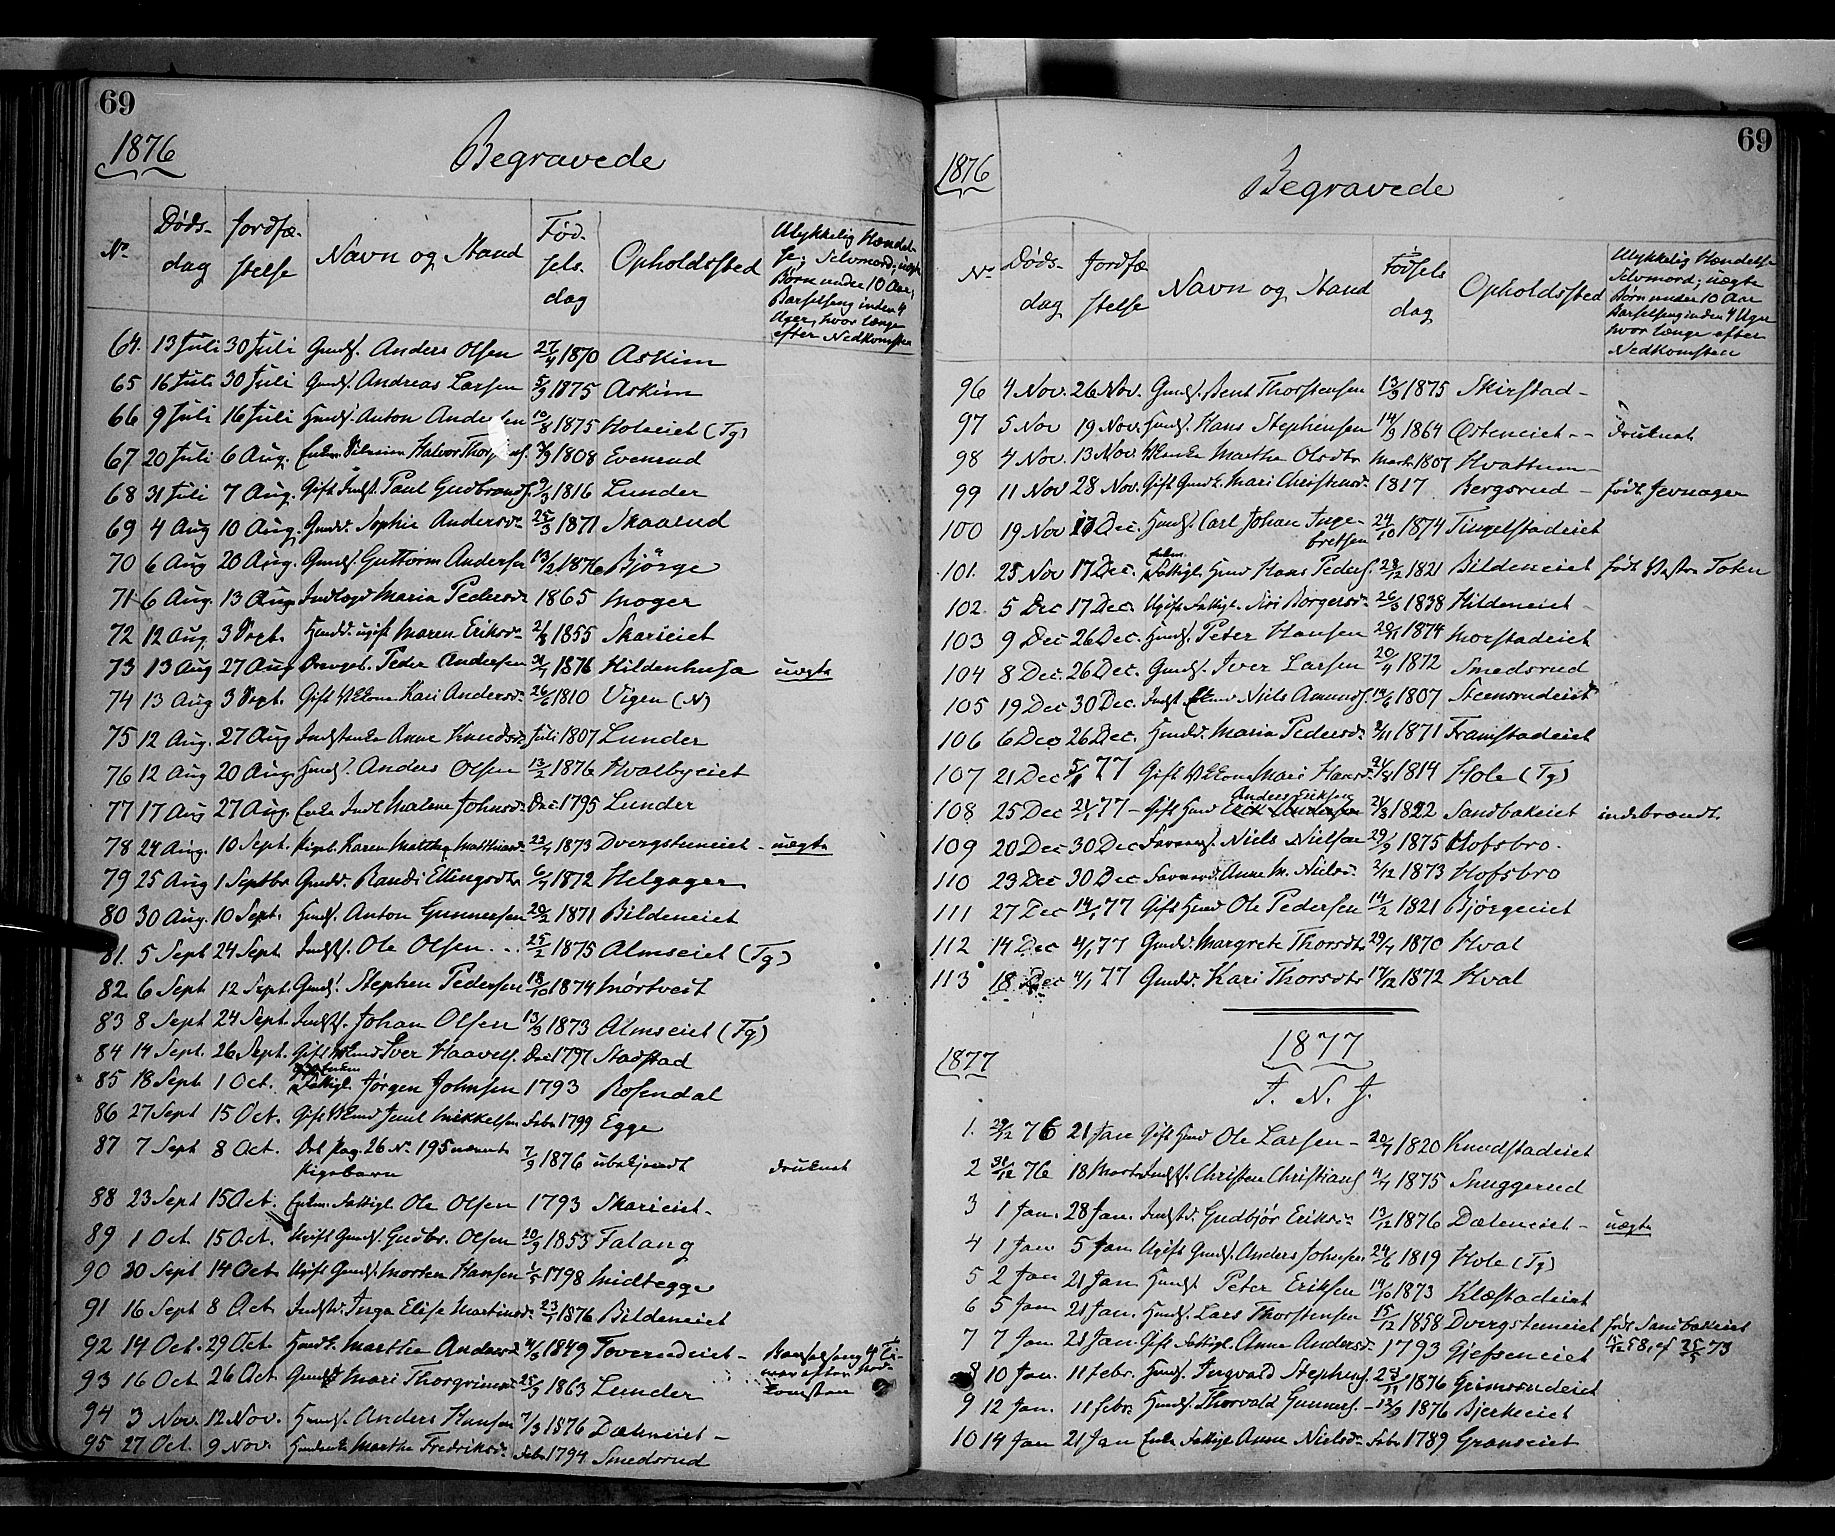 69
1876
Begravede
No
Døds-
dag
Jordfæ-
stelse
Navn og Stand
Fød-
sels-
dag
Opholdssted
Ulykkelig Hændel-
se; Selvmord; uægte
Børn under 10 Aar,
Barselseng inden 4
Uger, hvor længe
efter Nedkomsten
64. 13 Juli 30 Juli Gmds. Anders Olsen 27/4 1870 Askim
65 16 Juli 30 Juli Gmds. Andreas Larsen 5/3 1875 Askim
66 9 Juli 16 Juli Hmds. Anton Andersen 10/8 1875 Holeeiet (Tg)
67 20 Juli 6 Aug. Halvor 1808 Evenrud
68 31 Juli 7 Aug. Gift Indst. Paul Gudbrands. 9/3 1816 Lunder
69 4 Aug 10 Aug. Gmdd. Sophie Andersdr 25/5 1871 Skaarud
70 6 Aug 20 Aug. Gmds. Guttorm Andersen 13/2 1876 Bjørge
71 6 Aug. 13 Aug. Indlagd Maria Pedersdr 1865 Moger
72 12 Aug. 3 Sept. Hmdd. ugift Maren Eriksdr 2/8 1855 Skarieiet
73 13 Aug 27 Aug Drengeb. Peder Andersen 1876 Hildenhusa uægte
74 13 Aug 3 Sept. Gift Kone Kari Andersdr 26/6 1810 Vigen (N)
75 12 Aug. 27 Aug Anne Knudsdr Juli 1807 Lunder
76 12 Aug 20 Aug. Hmds. Anders Olsen 13/2 1876 Hvalbyeiet
77 17 Aug 27 Aug. Enke Indl Malene Johnsdr Dec 1795 Lunder
78 24 Aug. 10 Sept. Pigeb. Karen Mathea Mathiasdr 22/4 1873 Dvergsteneiet - uægte
79 25 Aug 1 Septbr Gmdd. Randi Ellingsdtr 6/4 1872 Helgager
80 30 Aug. 10 Sept. Hmds. Anton Gunnersen 20/2 1871 Bildeneiet
81. 5 Sept 24 Sept. Indsts. Ole Olsen 25/2 1875 Almseiet (Tg)
82 6 Sept 12 Sept. Gmds. Stephen Pedersen 18/10 1874 Mørtvest
83 8 Sept 24 Sept. Indsts. Johan Olsen 13/3 1873 Almseiet (Tg)
84 14 Sept. 26 Sept. Gift Iver Haavels. Dec 1797 Stadstad
85 18 Sept. 1 Oct. Fattigl. Jørgen Johnsen 1793 Rosendal
86 27 Sept 15 Oct. Gift Mikkelsen Febr 1799 Egge
87 7 Sept 8 Oct. Det Pag. 26 No 195 nævnte
Pigebarn 7/9 1876 ubekjendt druknet
88 23 Sept 15 Oct. Enkm. Fattigl. Ole Olsen 1793 Skarieiet -
89 1 Oct. 15 Oct. Ugift Gmds. Gudbr. Olsen 20/3 1853 Falang
90 30 Sept 14 Oct Ugift Gmds. Morten Hansen 1/5 1798 Midtegge
91 16 Sept 8 Oct Indstd. Inga Elise Martinsdr 23/1 1876 Bildeneiet
92 14 Oct. 29 Oct Hmdk. Marthe Andersdr 1849 Toverudeiet - Barselseng 4 Ti-
mer efter Ned-
komsten
93 16 Oct 26 Oct Gmdd Mari Thorgrimsdr 25/3 1863 Lunder
94 3 Nov. 12 Nov. Hmds. Anders Hansen 7/3 1876 Dæleneiet -
95 27 Oct. 9 Nov. Marthe Fredriksdr Febr 1794 Smedsrud
69
1876
Begravede
No
Døds-
dag
Jordfæ-
stelse
Navn og Stand
Fødsels
dag
Opholdssted
Ulykkelig Hændelse
Selvmord; uægte
Børn under 10 Aar
Barselseng inden 4 Uger
hvor længe efter
Nedkomsten
96 4 Nov. 26 Nov. Gmds. Bent Thorstensen 13/3 1875 Skirstad -
97 5 Nov 19 Nov. Hmds. Hans Stephensen 14/3 1864 Østeneiet - - druknet
98 4 Nov. 13 Nov Marthe Olsdtr Marts 1807 Hvattum -
99 11 Nov 28 Nov. Gift Gmdk. Mari Christensdr 1817 Bergsrud - født Jevnager
100 19 Nov 17 Dec. Hmds. Carl Johan Inge-
bretsen 24/10 1874 Tingelstadeiet
101. 25 Nov 17 Dec. Enkm. Fattigl. Hmd Hans Peders. 28/12 1821 Bildeneiet født Vestre Toten
102. 5 Dec 17 Dec. Ugift Fattigl. Siri Børgersdr 26/3 1838 Hildeneiet
103 9 Dec 26 Dec. Hmds. Peter Hansen 20/11 1874 Morstadeiet
104 8 Dec. 26 Dec. Gmds. Iver Larsen 20/4 1872 Smedsrud
105 19 Dec 30 Dec. Indst Niels Amunds. 14/6 1807 Steensrudeiet
106 6 Dec 26 Dec. Hmdd. Maria Pedersdr 2/11 1871 Framstadeiet
107 21 Dec 5/1 77 Gift Kone Mari Hansdr 24/8 1814 Hole (Tg)
108 25 Dec 21/1 77 - Gift Hmd Anders Eriksen 24/8 1822 Sandbakeiet indebrændt
109 20 Dec 30 Dec Niels Nielsen 29/9 1875 Hofsbro.
110 23 Dec 30 Dec Anne M. Nielsdr 2/12 1873 Hofsbro
111 27 Dec 14/1 77 Gift Hmd Ole Pedersen 14/2 1821 Bjørgeeiet
112 14 Dec 4/1 77 Gmdd. Margrete Thorsdtr 29/4 1870 Hval
113 18 Dec 4/1 77 Gmdd. Kari Thorsdtr 17/12 1872 Hval
1877
1877
I. N. J.
1. 29/12 76 21 Jan Gift Hmd Ole Larsen - 20/7 1820 Knudstadeiet
2 31/12 76 18 Marts Indsts. Christen Christians 1875 Snuggerud
3 1 Jan. 28 Jan. Indstd. Gudbjør Eriksdr 13/12 1876 Dæleneiet - uægte
4 1 Jan 5 Jan Ugift Gmds. Anders Johnsen 24/6 1819 Hole (Tg)
5 2 Jan 21 Jan Hmds Peter Eriksen 14/10 1873 Klæstadeiet
6 5 Jan 21 Jan. Hmds. Lars Thorstensen 15/12 1858 Dvergsteneiet født Sandbakeiet
15/12 58, cf 25/5 73
7 7 Jan 28 Jan. Gift Fattigl. Anne Andersdr 1793 Gjefseneiet
8 10 Jan. 11 febr. Hmds. Ingvard Stephens. 23/11 1876 Grimsrudeiet
9 12 Jan. 11 febr. Hmds. Thorvald Gunners. - 13/9 1876 Bjerkeeiet
10 14 Jan 21 Jan Enke Fattigl Anne Nielsdr Febr 1789 Granseiet